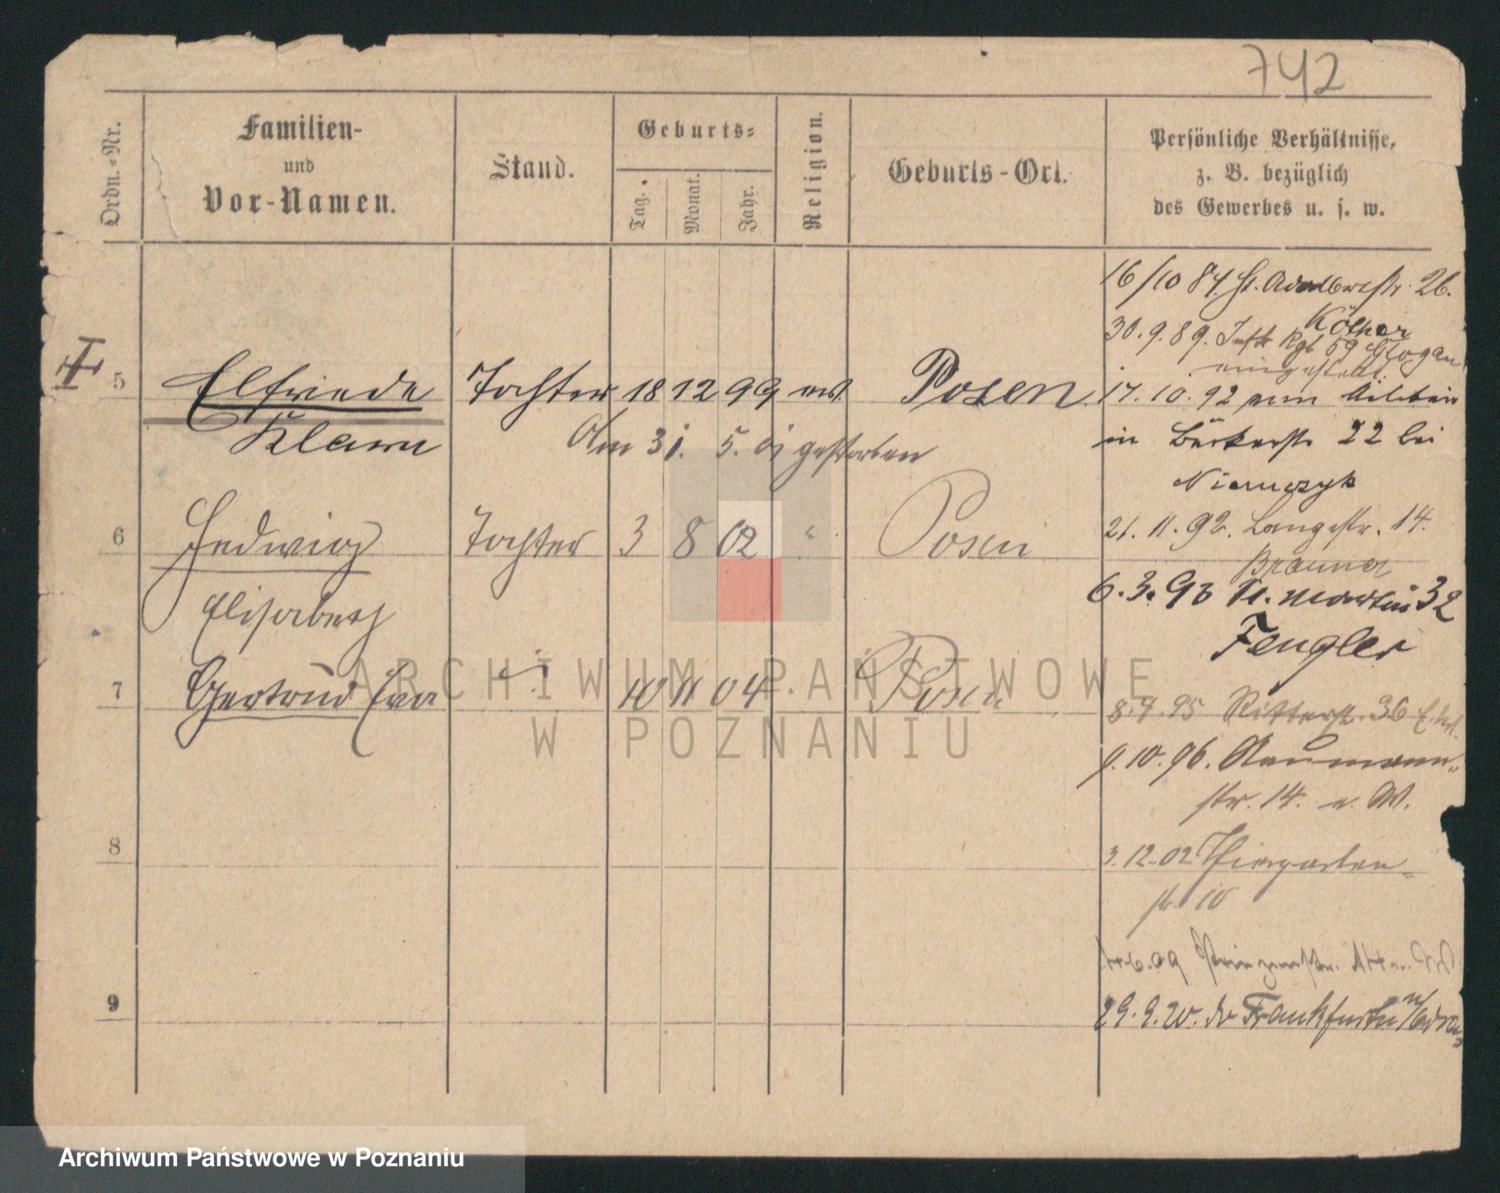 742
Ordn.-Nr.
Familien-
und
Vor-Namen.
Stand.
Geburts-
Tag.
Monat.
Jahr.
Religion.
Geburts-Ort.
Persönliche Verhältnisse,
z. B. bezüglich
des Gewerbes u. s. w.
16/10 84 St. Adalbertstr. 26.
Kölker
30.9.89. Inftr Rgt 59 Glogau
eingestellt
5 Elfriede Tochter 18 12 99 ev Posen
17.10.92 vom Militär
Klara Am 31. 5. 01 gestorben
in Bäckerstr 22 bei
Niemczyk
6 Hedwig Tochter 3 8 02 " Posen
21.11.92. Langestr. 14.
Brauner
Elisabeth
6.3.93 St. Martin 32
Fengler
7 Gertrud Eva 10 11 04 Posen
8.4.95 Ritterstr. 36
9.10.96. Naumann-
str. 14. n. W.
8
3.12.02 Thiergarten-
str. 10
9
4.6.09 Prinzenstr.
29.9.20. Frankfurt a/Oder
ARCHIWUM PAŃSTWOWE
W POZNANIU
Archiwum Państwowe w Poznaniu